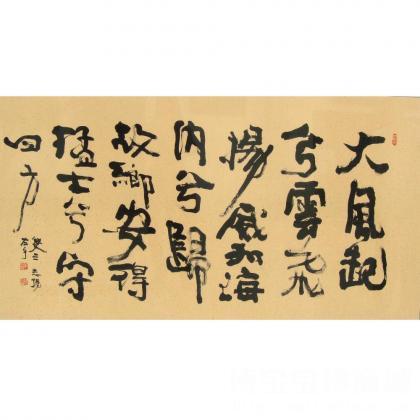 大風起
兮雲飛
揚威加海
内兮歸
故鄉安得
猛士兮守
四方